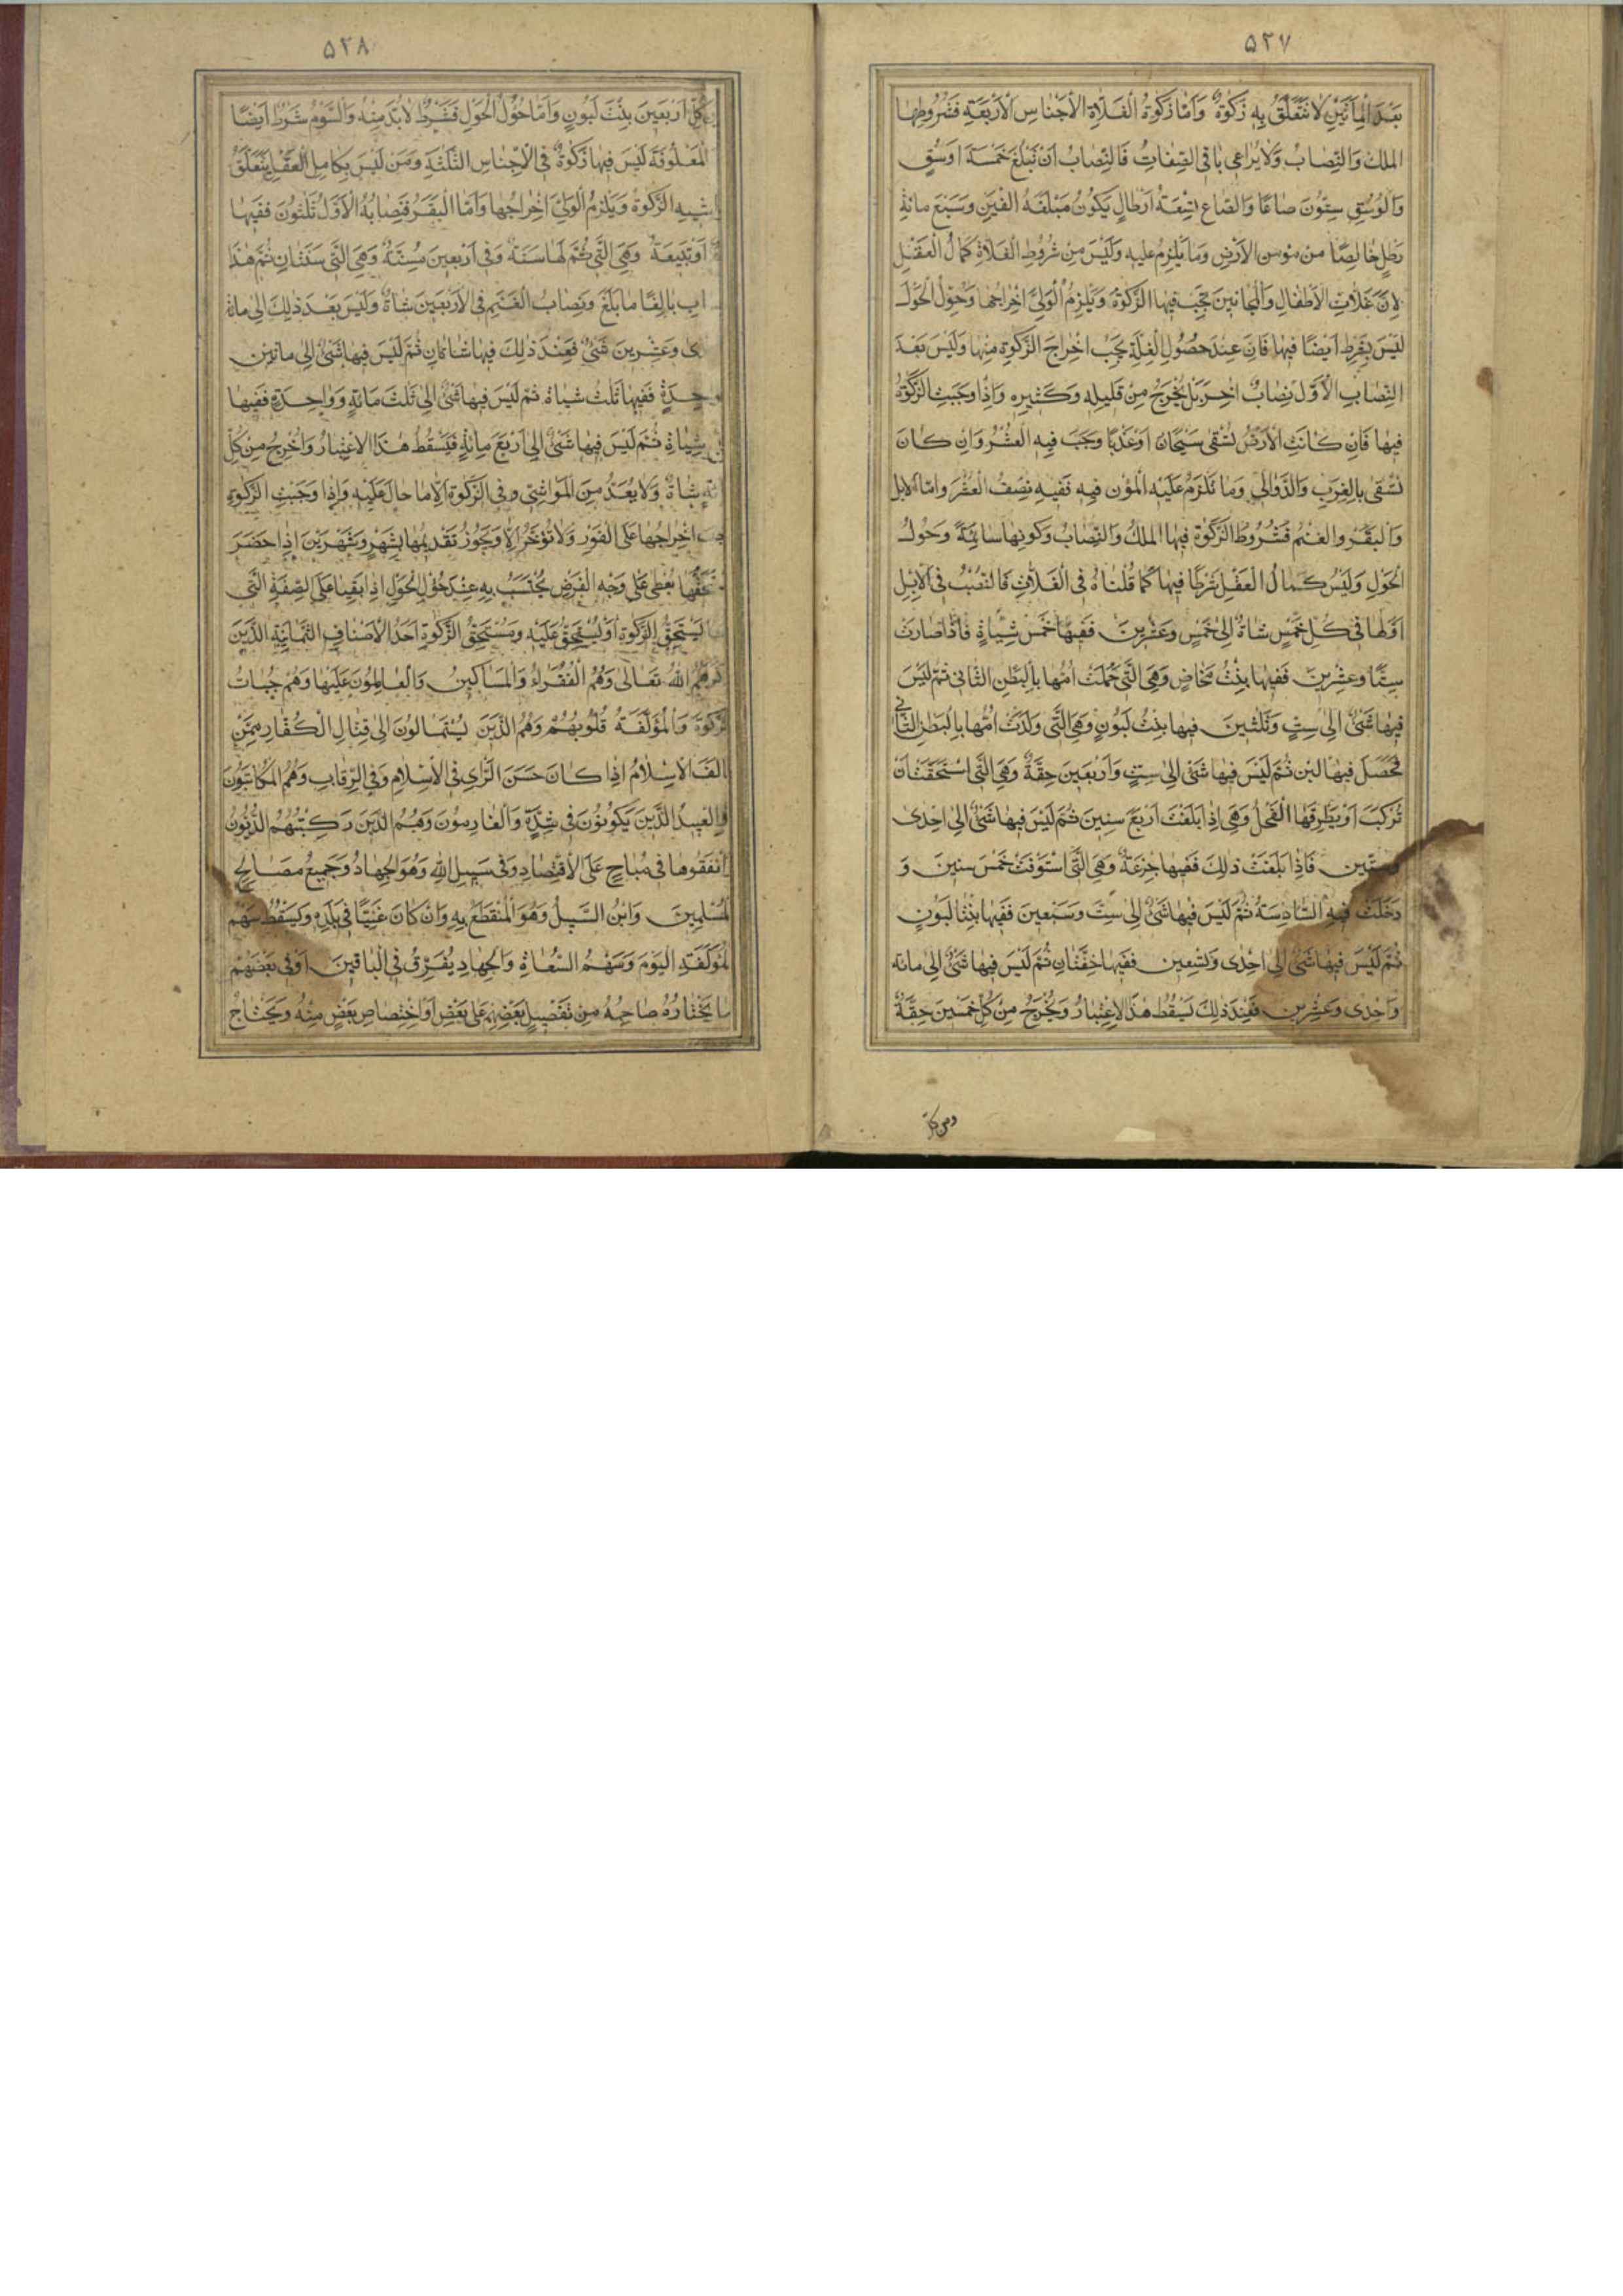 ٥٢٧
بَعْدَ الْمِأَتَيْنِ لَا تَتَعَلَّقُ بِهِ زَكٰوةٌ وَاَمَّا زَكٰوةُ الْغَلَّاةِ الْاَجْنَاسِ الْاَرْبَعَةِ فَشُرُوطُهَا
الملك وَالنِّصَابُ وَلَا يُرَاعى بَاقى الصِّفَاتِ فَالنِّصَابُ اَنْ تَبْلُغَ خَمْسَةَ اَوْسُقٍ
وَالْوَسْقِ سِتُّونَ صَاعًا وَالصّاع تِسْعَةُ اَرْطَالٍ يَكُونُ مَبْلَغَهُ اَلْفَيْنِ وَسَبْعَ مِائَةِ
رَطْلٍ خَالِصًا مِنْ مؤن الْاَرْضِ وَمَا يَلْزَمُ عَلَيْهِ وَلَيْسَ مِنْ شُرُوطِ الْغَلَّاةِ كَمَالُ الْعَقْلِ
لِاَنَّ غَلَّاتِ الْاَطْفَالِ وَالْمَجَانِينَ تَجِبُ فِيهَا الزَّكٰوةُ وَيَلْزَمُ الْوَلِيَّ اِخْرَاجُهَا وَحُؤُلُ الْحَوْلِ
لَيْسَ بِشَرْطٍ اَيْضًا فِيهَا فَاِنَّ عِنْدَ حُصُولِ الْغَلَّةِ يَجِبُ اِخْرَاجَ الزَّكٰوةِ مِنْهَا وَلَيْسَ بَعْدَ
النِّصَابِ الْاَوَّلِ نِصَابٌ اٰخَرَ بَلْ يُخْرَجُ مِنْ قَلِيلِهِ وَكَثِيرِهِ وَاِذَا وَجَبَتِ الزَّكٰوةُ
فِيهَا فَاِنْ كَانَتِ الْاَرْضُ تُسْقٰى سَيْحَان اَوْ عَذْبًا وَجَبَ فِيهِ الْعُشْرُ وَاِنْ كَانَ
تُسْقٰى بِالْغَرْبِ وَالدَّوَالِي وَمَا تَلْزَمُ عَلَيْهِ الْمُؤَن فِيهِ فَفِيهِ نِصْفُ الْعُشْرِ وَامّا الابل
وَالْبَقَرُ وَالْغَنَمُ فَشُرُوطُ الزَّكٰوةِ فِيهَا الْمِلْكُ وَالنِّصَابُ وَكَونهَا سَائِمَةً وَحُولُ
الْحَوْلِ وَلَيْسَ كَمَالُ الْعَقْلِ شَرْطًا فِيهَا كَمَا قُلْنَاهُ فِي الْغَلَّاتِ فَالنُّصُبُ فِي الْاِبِلِ
اَوَّلُهَا فِي كُلِّ خَمْسٍ شَاةٌ اِلٰى خَمْسٍ وَعِشْرِينَ فَفِيهَا خَمْسُ شِيَاةٍ فَاِذَا صَارَتْ
سِتًّا وَعِشْرِينَ فَفِيهَا بِنْتُ مَخَاضٍ وَهِيَ الَّتِي حَمَلَتْ اُمُّهَا بِالْبَطْنِ الثَّانِي ثُمَّ لَيْسَ
فِيهَا شَئٌ اِلٰى سِتٍّ وَثَلٰثِينَ فِيهَا بِنْتُ لَبُونٍ وَهِيَ الَّتِي وَلَدَتْ اُمُّهَا بِالْبَطْنِ الثَّانِي
فَحَصَلَ فِيهَا لَبَن ثُمَّ لَيْسَ فِيهَا شَئٌ اِلٰى سِتٍّ وَاَرْبَعِينَ حِقَّةٌ وَهِيَ الَّتِي اسْتَحَقَّتْ اَنْ
تُرْكَبَ اَوْ يَطْرِقَهَا الْفَحْلُ وَهِيَ اِذَا بَلَغَتْ اَرْبَعَ سِنِينَ ثُمَّ لَيْسَ فِيهَا شَئٌ اِلٰى اِحْدٰى
وَسِتِّين فَاِذَا بَلَغَتْ ذٰلِكَ فَفِيهَا جَزَعَةٌ وَهِيَ الَّتِي اسْتَوْفَتْ خَمْسَ سِنِينَ وَ
دَخَلَتْ فِيهِ السَّادِسَةُ ثُمَّ لَيْسَ فِيهَا شَئٌ اِلٰى سِتَّ وَسَبْعِينَ فَفِيهَا بِنْتَا لَبُونٍ
ثُمَّ لَيْسَ فِيهَا شَئٌ اِلٰى اِحْدٰى وَتِسْعِين فَفِيهَا حِقَّتَانِ ثُمَّ لَيْسَ فِيهَا شَئٌ اِلٰى مائه
وَاِحْدٰى وَعِشْرِينَ فَعِنْدَ ذٰلِكَ يَسْقُطُ هٰذَا الْاِعْتِبَارُ وَيُخْرَجُ مِنْ كُلِّ خَمْسِينَ حِقَّةٌ
ومن كل
٥٢٨
كُلِّ اَرْبَعِينَ بِنْتَ لَبُونٍ وَاَمَّا حُؤُلُ الْحَوْلِ فَشَرْطٌ لَابُدَّ مِنْهُ وَالسَّوْمُ شَرْطٌ اَيْضًا
الْمَعْلُوفَةَ لَيْسَ فِيهَا زَكٰوةٌ فِي الْاَجْنَاسِ الثَّلٰثَةِ وَمَنْ لَيْسَ بِكَامِلِ الْعَقْلِ يَتَعَلَّقُ
الزَّكٰوةُ وَيَلْزَمُ الْوَلِيَّ اِخْرَاجُهَا وَاَمَّا الْبَقَرُ فَنِصَابُهُ الْاَوَّلُ ثَلٰثُونَ فَفِيهَا
اَوْ تَبِيعَةٌ وَهِيَ الَّتِي تَمَّ لَهَا سَنَةٌ وَفِي اَرْبَعِينَ مُسِنَّةٌ وَهِيَ الَّتِي سَنَتَانِ ثُمَّ هٰذَا
اب بَالِغًا مَا بَلَغَ وَنِصَابُ الْغَنَمِ فِي الْاَرْبَعِينَ شَاةٌ وَلَيْسَ بَعْدَ ذٰلِكَ اِلٰى مائة
وَعِشْرِينَ شَئٌ فَعِنْدَ ذٰلِكَ فِيهَا شَاتَانِ ثُمَّ لَيْسَ فِيهَا شَئٌ اِلٰى مائتين
فَفِيهَا ثَلٰثُ شِيَاةٍ ثُمَّ لَيْسَ فِيهَا شَئٌ اِلٰى ثَلٰثَ مِائَةٍ وَوَاحِدَةٍ فَفِيهَا
شِيَاةٍ ثُمَّ لَيْسَ فِيهَا شَئٌ اِلٰى اَرْبَعَ مِائَةٍ فَيَسْقُطُ هٰذَا الْاِعْتِبَارُ وَاُخْرِجَ مِنْ كُلِّ
شَاةٌ وَلَا يُعَدُّ مِنَ الْمَوَاشِي وفِي الزَّكٰوةِ اِلَّا مَا حَالَ عَلَيْهِ وَاِذَا وَجَبَتِ الزَّكٰوةِ
اِخْرَاجُهَا عَلَى الْفَوْرِ وَلَا تُؤَخَّرُ اِلَّا وَيَجُوزُ تَقْدِيمُهَا بِشَهْرٍ وَشَهْرَيْنِ اِذَا حَضَرَ
يُعْطٰى عَلٰى وَجْهِ الْقَرْضِ يُحْتَسَبُ بِهِ عِنْدَ حُؤُلِ الْحَوْلِ اِذَا بَقِيَا عَلَى الصِّفَةِ الَّتِي
يَسْتَحِقُّ الزَّكٰوةَ اَوْ يُسْتَحَقُّ عَلَيْهِ وَمُسْتَحِقُّ الزَّكٰوةِ اَحَدُ الْاَصْنَافِ الثَّمَانِيَةِ الَّذِينَ
اللهُ تَعَالٰى وَهُمُ الْفُقَرَاءُ وَالْمَسَاكِينُ وَالْعَامِلُونَ عَلَيْهَا وَهُمْ جُبَاتُ
الزَّكٰوةِ وَالْمُؤَلَّفَةُ قُلُوبُهُمْ وَهُمُ الَّذِينَ يُسْتَمَالُونَ اِلٰى قِتَالِ الْكُفَّارِ مِمَّنْ
خَالَفَ الْاِسْلَامُ اِذَا كَانَ حَسَنَ الرَّاىِ فِي الْاِسْلَامِ وَفِي الرِّقَابِ وَهُمُ الْمُكَاتَبُونَ
وَالْعَبِيدُ الَّذِينَ يَكُونُونَ فِي شِدَّةٍ وَالْغَارِمُونَ وَهُمُ الَّذِينَ رَكِبَتْهُمُ الدُّيُونُ
اَنْفَقُوهَا فِي مُبَاحٍ عَلَى الْاِقْتِصَادِ وَفِي سَبِيلِ اللهِ وَهُوَ الْجِهَادُ وَجَمِيعُ مَصَالِحِ
الْمُسْلِمِينَ وَابْنُ السَّبِيلُ وَهُوَ الْمُنْقَطَعُ بِهِ وَاِنْ كَانَ غَنِيًّا فِي بَلَدِهِ وَيَسْقُطُ سَهْمُ
الْمُؤَلَّفَةِ الْيَوْمَ وَسَهْمُ السُّعَاةِ وَالْجِهَادِ يُفَرَّقُ فِي الْبَاقِينَ اَوْ فِي بَعْضِهِمْ
مَا يَخْتَارُهُ صَاحِبُهُ مِنْ تَفْضِيلِ بَعْضِهِمْ عَلٰى بَعْضٍ اَوْ اِخْتِصَاصِ بَعْضٍ مِنْهُ وَيَحْتَاجُ